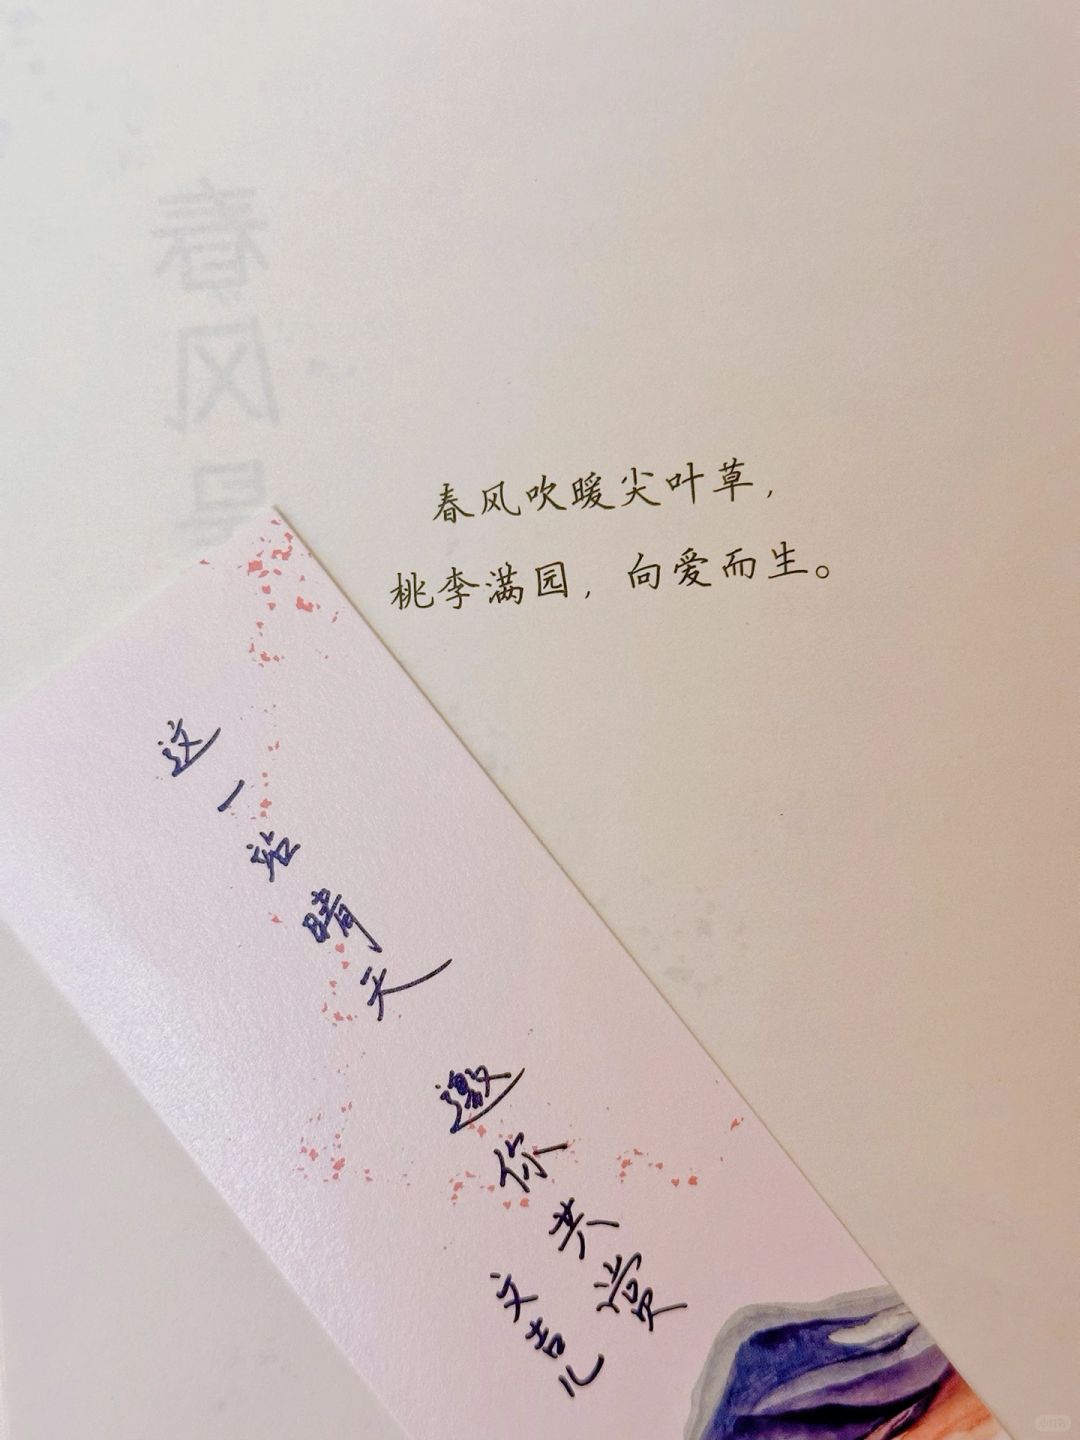 春风是
春风吹暖尖叶草，
桃李满园，向爱而生。
这一站晴天
邀你共赏
文吉儿